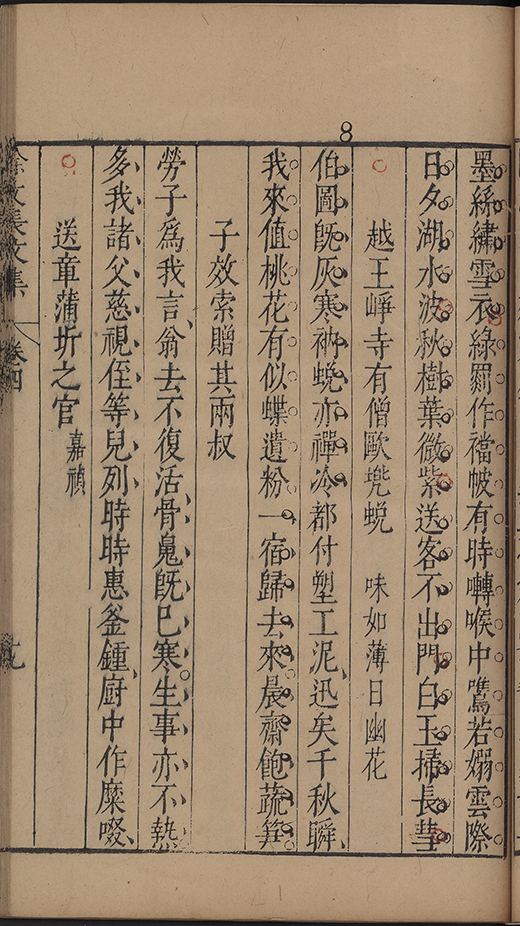 8
墨絲繡雪衣綠罽作襠帔有時囀喉中鶯若嫋雲際
日夕湖水波秋樹葉微紫送客不出門白玉掃長彗
越王崢寺有僧歐兠蛻　味如薄日幽花
伯圖旣灰寒衲蛻亦禪冷都付塑工泥迅矣千秋瞬
我來值桃花有似蝶遺粉一宿歸去來晨齋飽蔬筍
子效索贈其兩叔
勞子爲我言翁去不復活骨鬼旣已寒生事亦不熱
多我諸父慈視侄等兒列時時惠釜鍾廚中作糜啜
送章蒲圻之官 嘉禎
徐文長文集 卷四